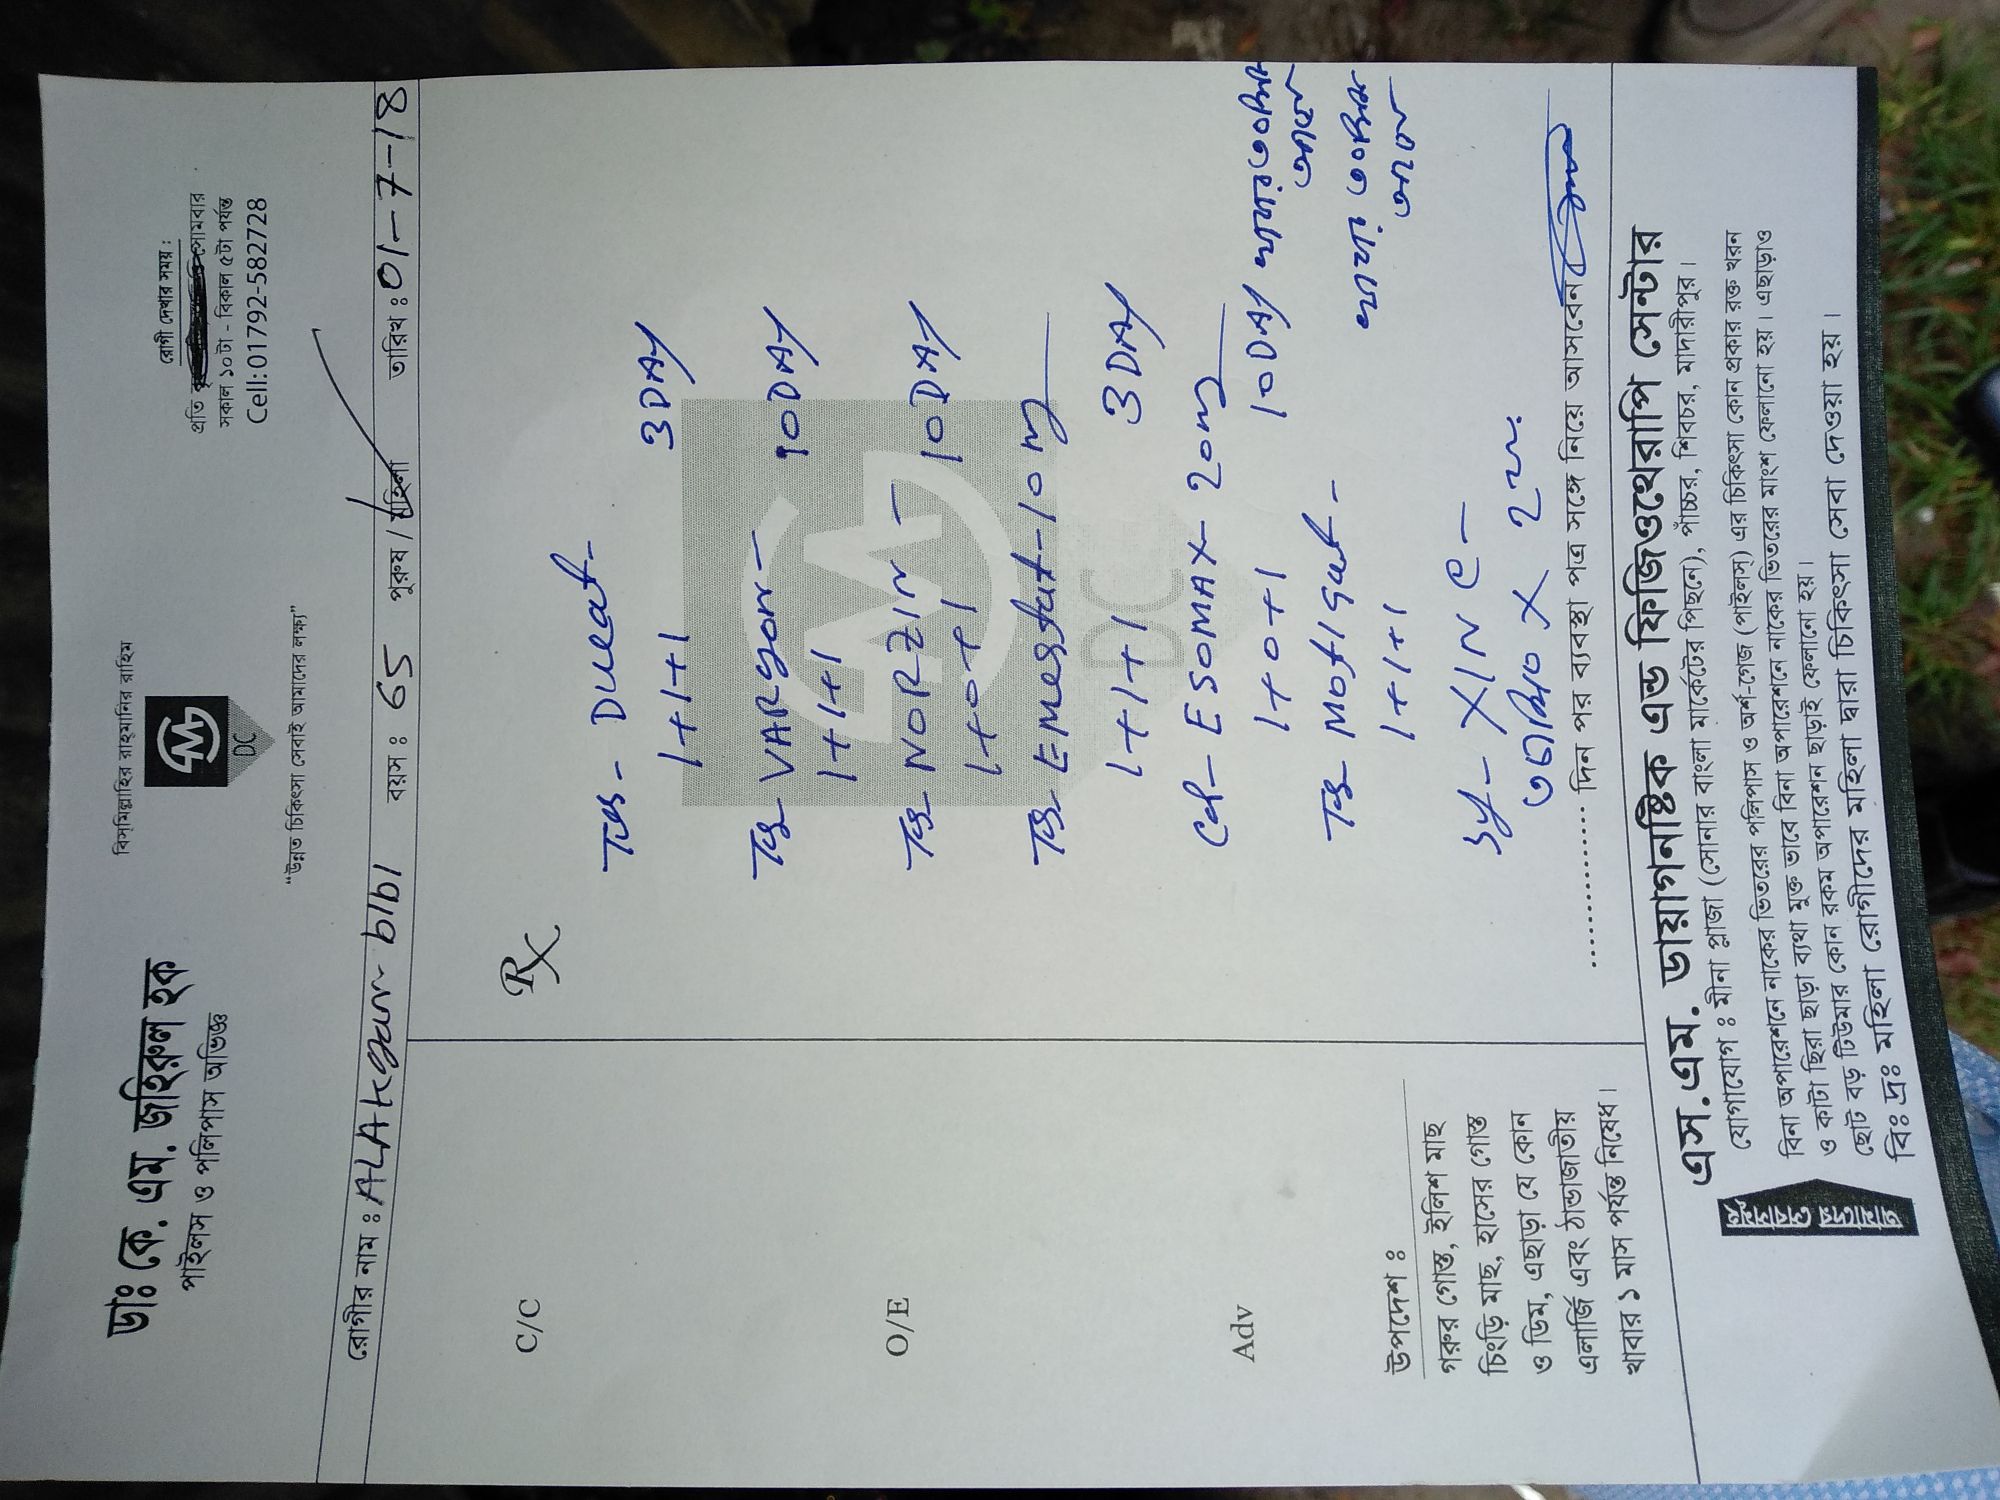 বিস্‌মিল্লাহির রাহ্‌মানির রাহিম
ডাঃ কে. এম. জহিরুল হক
পাইলস ও পলিপাস অভিজ্ঞ
DC
"উন্নত চিকিৎসা সেবাই আমাদের লক্ষ্য"
রোগী দেখার সময় :
প্রতি সোমবার
সকাল ১০টা - বিকাল ৫টা পর্যন্ত
Cell:01792-582728
রোগীর নাম : ALAKgan bibi বয়স : 65 পুরুষ / মহিলা তারিখ : 01-7-18
C/C
O/E
Adv
উপদেশ :
গরুর গোস্ত, ইলিশ মাছ
চিংড়ি মাছ, হাসের গোস্ত
ও ডিম, এছাড়া যে কোন
এলার্জি এবং ঠান্ডাজাতীয়
খাবার ১ মাস পর্যন্ত নিষেধ।
Rx
1+1+1 3 DAY
1+1+1 10 DAY
NORZIN -
1+0+1 10 DAY
Emestat-10 mg
1+1+1 3 DAY
Cap- ESOMAX- 20mg
1+0+1 10 DAY
Motigut -
1+1+1
Sy- XINC -
DC
............ দিন পর ব্যবস্থা পত্র সঙ্গে নিয়ে আসবেন
এস.এম. ডায়াগনষ্টিক এন্ড ফিজিওথেরাপি সেন্টার
যোগাযোগ : মীনা প্লাজা (সোনার বাংলা মার্কেটের পিছনে), পাঁচ্চর, শিবচর, মাদারীপুর।
আমাদের সেবাসমূহ
বিনা অপারেশনে নাকের ভিতরের পলিপাস ও অর্শ-গেজ (পাইলস) এর চিকিৎসা কোন প্রকার রক্ত খরন
ও কাটা ছিরা ছাড়া ব্যথা মুক্ত ভাবে বিনা অপারেশনে নাকের ভিতরের মাংশ ফেলানো হয়। এছাড়াও
ছোট বড় টিউমার কোন রকম অপারেশন ছাড়াই ফেলানো হয়।
বিঃ দ্রঃ মহিলা রোগীদের মহিলা দ্বারা চিকিৎসা সেবা দেওয়া হয়।